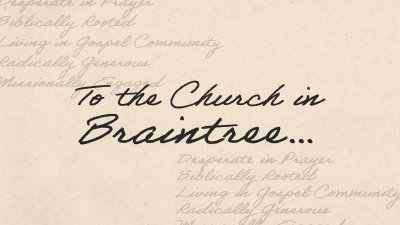 Desperate in Prayer
Biblically Rooted
Living in Gospel Community
Radically Generous
Missionally Engaged
To the Church in
Braintree...
Desperate in Prayer
Biblically Rooted
Living in Gospel Community
Radically Generous
Missionally Engaged